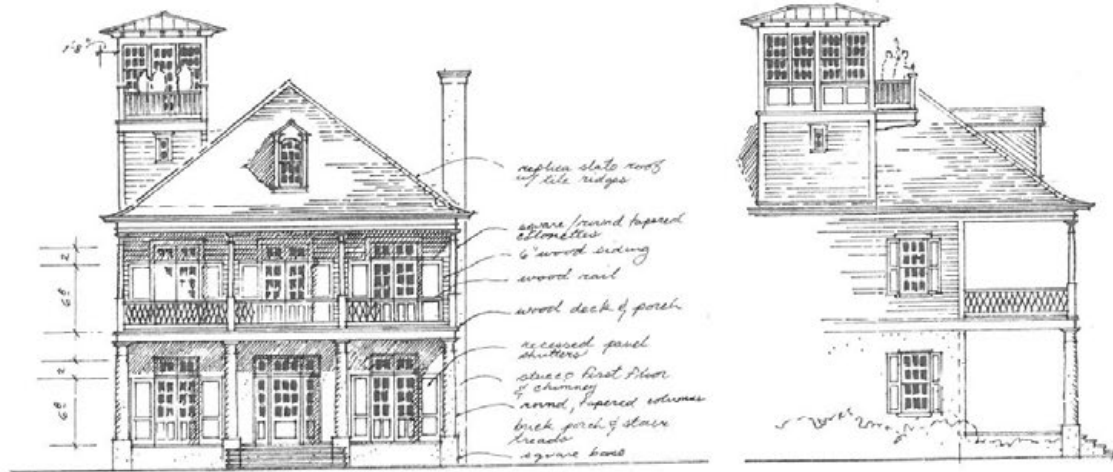 1'-8"
replica slate roof
w/ tile ridges
square/round tapered
colonettes
6" wood siding
wood rail
wood deck & porch
recessed panel
shutters
stucco first floor
& chimney
round, tapered columns
brick porch & stair
treads
square base
2'
6'8"
2'
6'8"